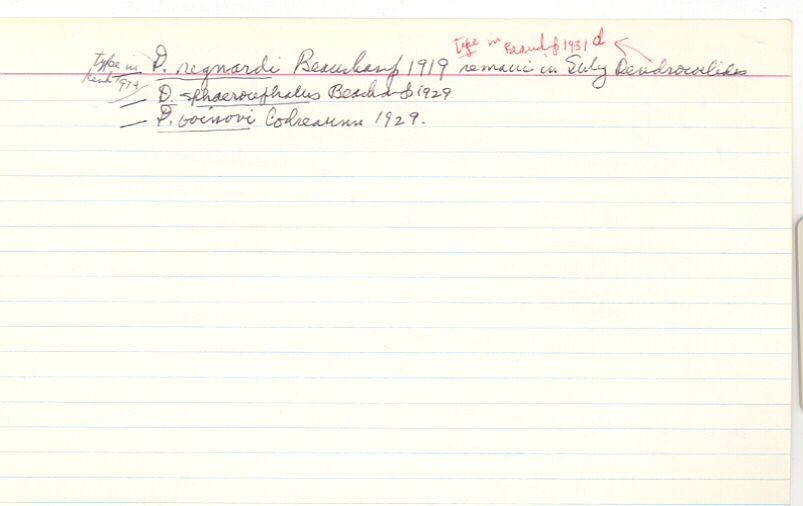 type in Beauchf 1931 d
type in D. regnardi Beauchamp 1919 remains in Subg Dendrocoelides
Kenk 1974
— D. sphaerocephalus Beauchamp 1929
— D. voinovi Codreanu 1929.